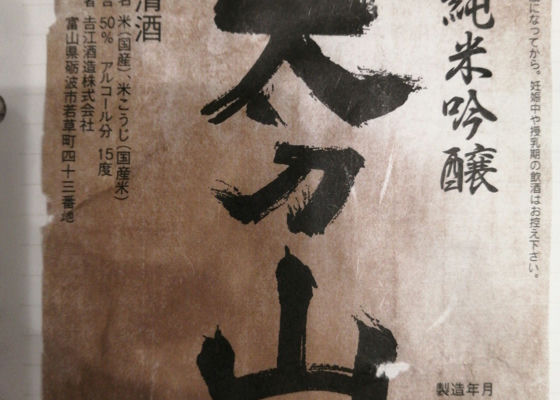 になってから。妊娠中や授乳期の飲酒はお控え下さい。
純米吟醸
製造年月
太刀山
清酒
名 米(国産)、米こうじ(国産米)
合 50% アルコール分 15度
者 吉江酒造株式会社
富山県砺波市若草町四十三番地